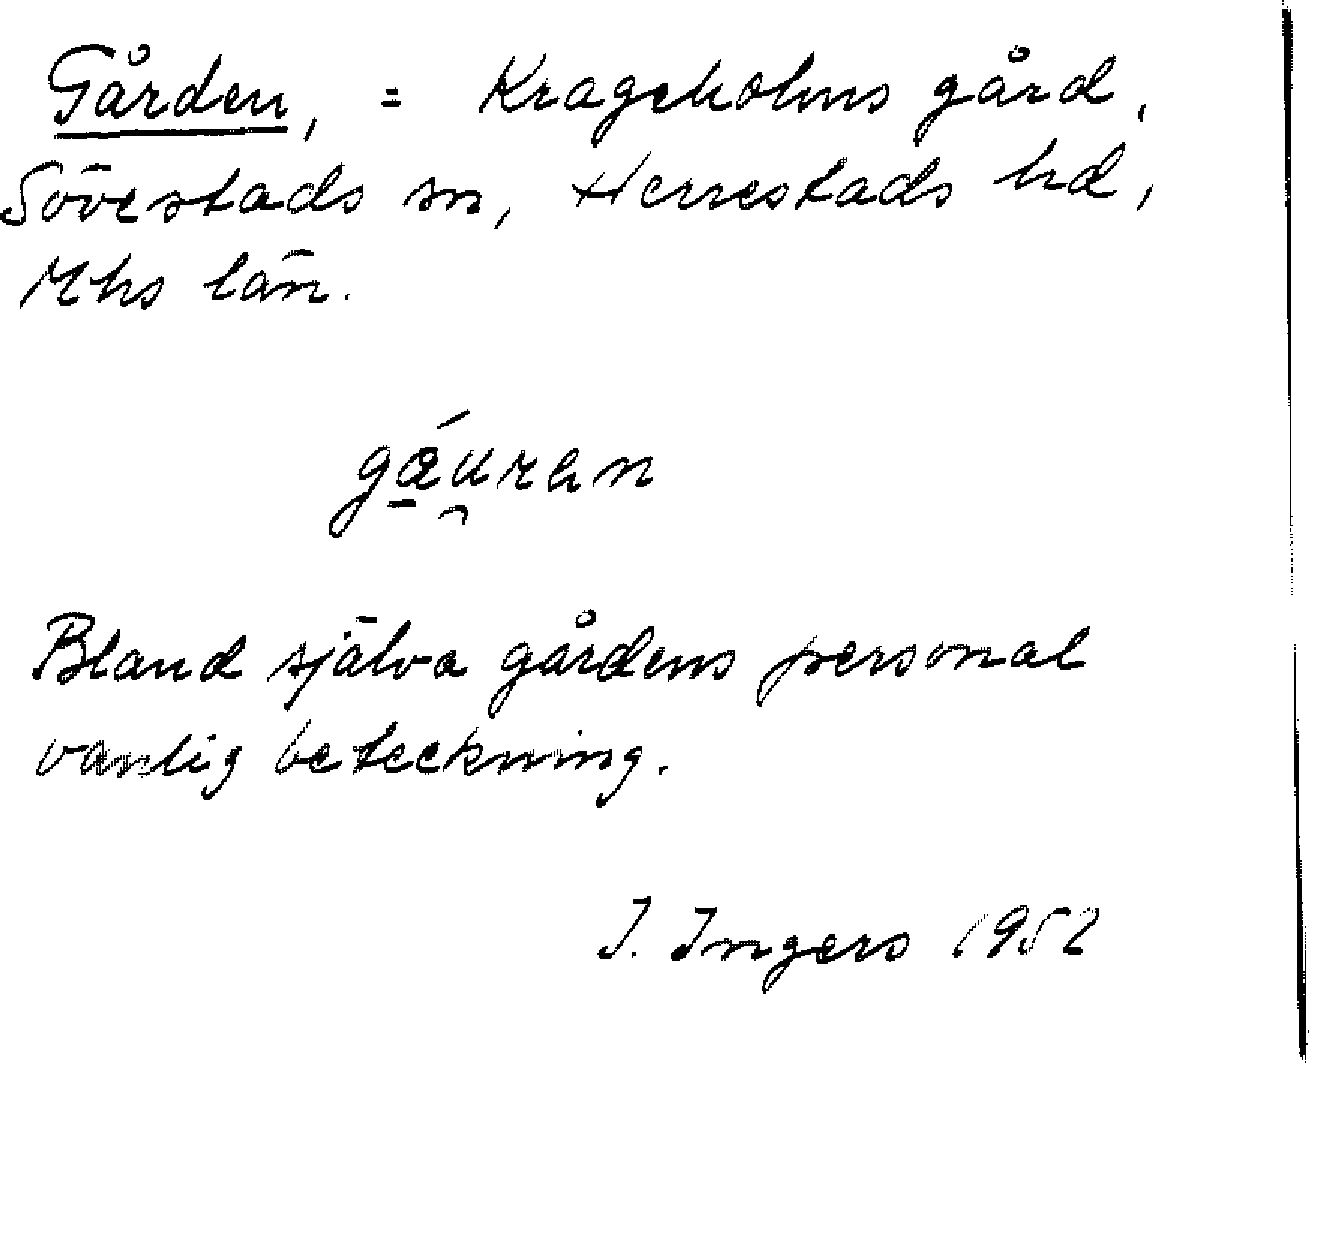 Gården, = Krageholms gård,
Sövestads sn, Herrestads hd,
Mhs län.
gǽu̯ren
Bland själva gårdens personal
vanlig beteckning.
I. Ingers 1952